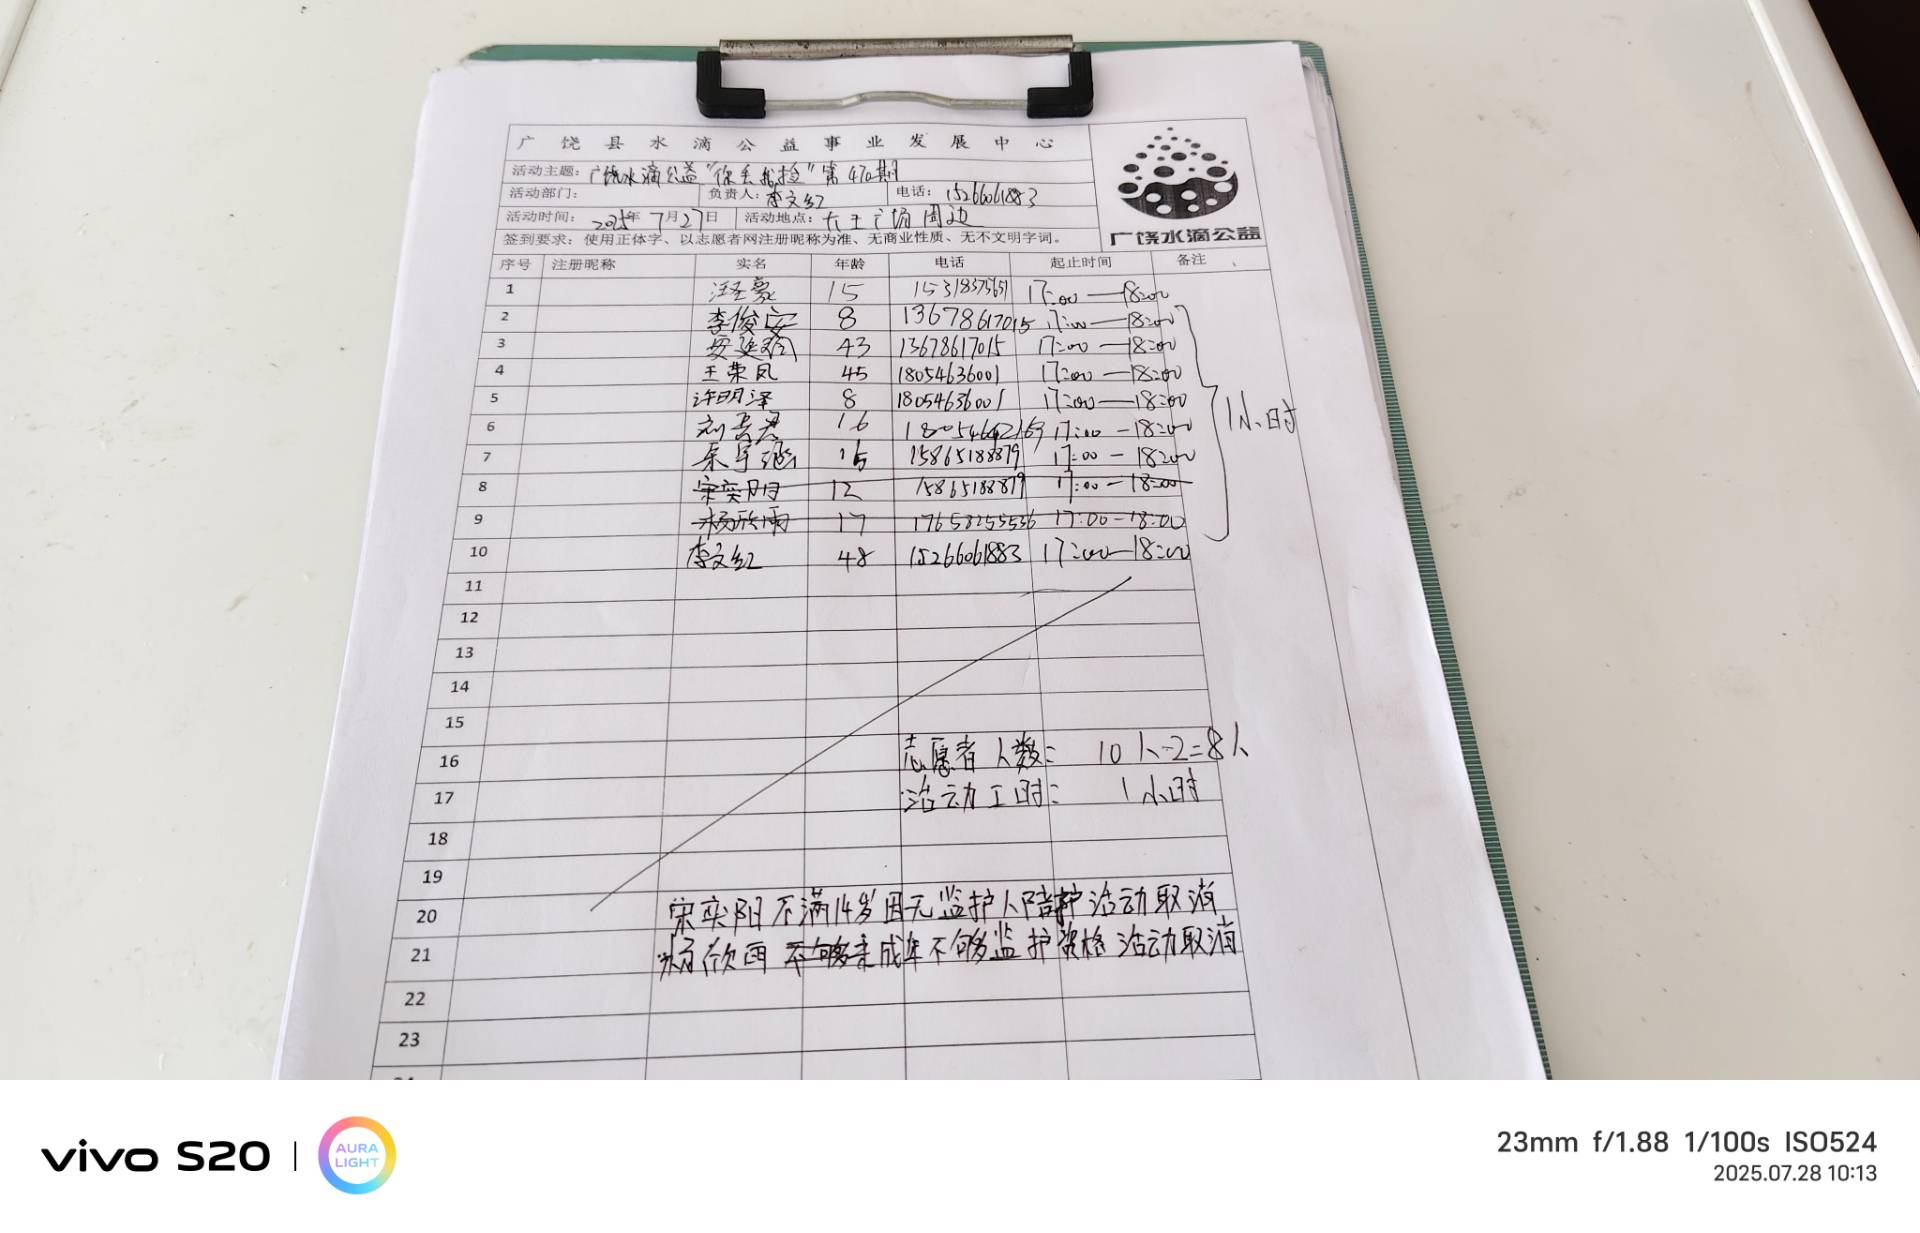 广饶县水滴公益事业发展中心
活动主题: 广饶水滴公益“你丢我捡”第470期
活动部门: 负责人: 李文红 电话: 15266061883
活动时间: 2025年7月27日 活动地点: 大王广场周边
签到要求: 使用正体字、以志愿者网注册昵称为准、无商业性质、无不文明字词。
广饶水滴公益
序号 注册昵称 实名 年龄 电话 起止时间 备注
1 15 15318375651 17:00—18:00
2 李俊安 8 13678617015 17:00—18:00
3 43 13678617015 17:00—18:00
4 王荣凤 45 18054636001 17:00—18:00
5 许明泽 8 18054636001 17:00—18:00
6 16 17:00-18:00
7 15865188879 17:00-18:00
8 宋奕阳 12 15865188879 17:00-18:00
9 杨欣雨 17 17658255536 17:00-18:00
10 李文红 48 15266061883 17:00—18:00
1小时
11
12
13
14
15
16 志愿者人数: 10人-2=8人
17 活动工时: 1小时
18
19
20 宋奕阳不满14岁因无监护人陪护活动取消
21 杨欣雨 未成年不够监护资格活动取消
22
23
vivo S20 | AURA LIGHT
23mm f/1.88 1/100s ISO524
2025.07.28 10:13